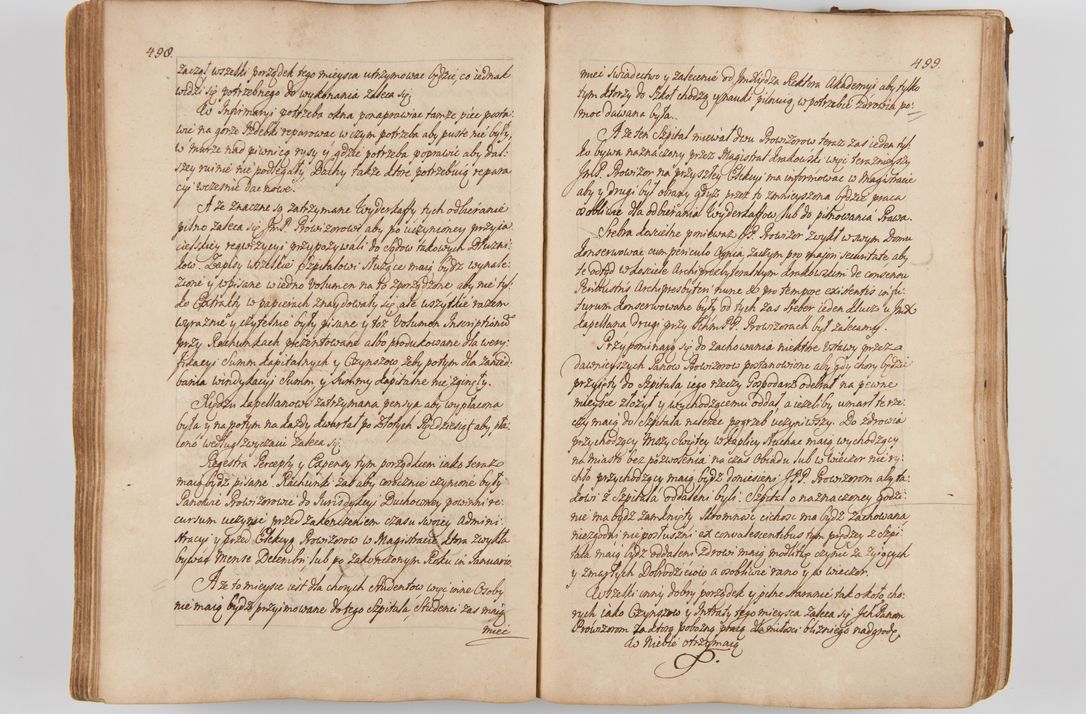 498.
zaczął wszelki porządek tego mieysca utrzymowac będzie, co iednak
widzi się potrzebnego do wykonania zaleca się.
W Infirmaryi potrzeba okna ponaprawiac tamże piec posta-
wic na gorze Izdebki reparowac w czym potrzeba aby puste nie były,
w murze nad piwnicą rysy y gdzie potrzeba poprawic aby dal-
szey ruinie nie podlegały, Dachy także ktore potrzebuią repara
cyi wczesnie dac nowe.
A że znaczne są zatrzymane Wyderkaffy tych odbieranie
pilno zaleca się JmP. Prowizorowi aby po uczynioney przyia
cielskiey rekwizycyi przypozywali do Sądow takowych Dłużni-
kow. Zapisy wszelkie Szpitalowi służące maią bydz wynale-
zione y wpisane w iedno Volumen na to sporządzone aby nie tyl-
ko Extrakty w papierach znaydowały się, ale wszystkie razem
wyraźnie y czytelnie były pisane y toż Volumen Inscriptionũ
przy Rachunkach prezentowane albo produkowane dla wery-
fikacyi Summ Kapitalnych y Czynszow żeby potym dla zanied-
bania windykacyi Summ y Summy Kapitalne nie zginęły.
Xiędzu Kapellanowi zatrzymana pensya aby wypłacona
była y na potym na każdy kwartał po Złotych Pięćdziesiąt aby pła-
cono według zwyczaiu zaleca się.
Regestra Percepty y Expensy tym porządkiem iako teraz
maią bydź pisane. Rachunki zas aby corocznie czynione były
Panowie Prowizorowie do Jurisdykcyi Duchowney powinni re-
cursum uczynic przed zakonczeniem czasu swoiey Admini-
stracyi y przed Elekcyą Prowizorow w Magistracie, ktora zwykła
bywac Mense Decembri lub po zakończonym Roku in Januario.
A że to mieysce iest dla chorych Studentow więc inne Osoby
nie maią bydz przyimowane do tego Szpitala, Studenci zas maią
miec
499.
miec Swiadectwo y zalecenie od Jmć Xiędza Rektora Akademyi aby tylko
tym ktorzy do Szkoł chodzą y nauki pilnuią, w potrzebie zdrowia po-
moc dawana była.
A że ten Szpital miewał dwu Prowizorow teraz zas ieden tyl-
ko bywa naznaczony przez Magistrat Krakowski więc teraznieyszy
JmP. Prowizor na przyszłey Elekcyi ma informowac w Magistracie
aby y drugi był obrany gdyż przez to zmnieyszona będzie praca
osobliwie dla odbierania Wyderkafow, lub do pilnowania Prawa.
Srebra koscielne ponieważ JP. Prowizor zwykł w swym Domu
konserwowac cum periculo Ognia, zaczym pro majori securitate aby
te odtąd w kosciele Archipresbyteralnym Krakowskim de consensu
Perillustris Archipresbyteri nunc & pro tempore existentis in fu-
turum konserwowane były od tych zas Sreber ieden klucz u JmX
Kapellana drugi przy Ichm PP. Prowizorach był zalecamy.
Przypominaią się do zachowania niektore Ustawy przez
dawnieyszych Panow Prowizorow postanowione aby gdy chory będzie
przyięty do Szpitala iego rzeczy Gospodarz odebrał na pewne
mieysce złożył y wychodzącemu oddał, a ieżeliby umarł te rze-
czy maią do Szpitala należec pogrzeb uczyniwszy. Do zdrowia
przychodzący Mszy Swiętey w kaplicy słuchac maią wychodzący
na miasto bez pozwolenia na czas Obiadu lub w wieczor nie ry-
chło przychodzący maią bydz doniesieni JPP. Prowizorom aby ta-
kowi z Szpitala oddaleni byli. Szpital o naznaczoney godzi-
nie ma bydz zamknięty Skromność cichość ma bydz zachowana
niezgodni nieposłuszni ex convalescentibus tym prędzey z Szpi-
tala maią bydz oddaleni. Zdrowi maią modlitwę czynic za żyiących
y zmarłych Dobrodzieiow a osobliwie rano y w wieczor.
Wszelki inny dobry porządek y pilne staranie tak około cho-
rych iako Czynszow y Intraty tego mieysca zaleca się Ich Panom
Prowizorom za ktorą pobożną pracą dla miłosci bliźniego nadgrodę
do Niebie otrzymaią